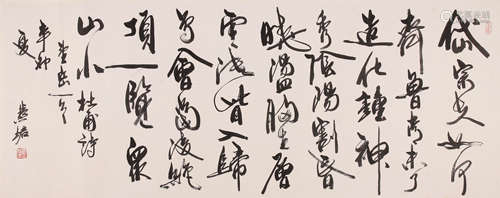 岱宗夫如何
齊魯青未了
造化鍾神
秀陰陽割昏
曉盪胸生層
雲決眥入歸
鳥會當凌絕
頂一覽眾
山小杜甫詩
望岳一首
辛卯
夏